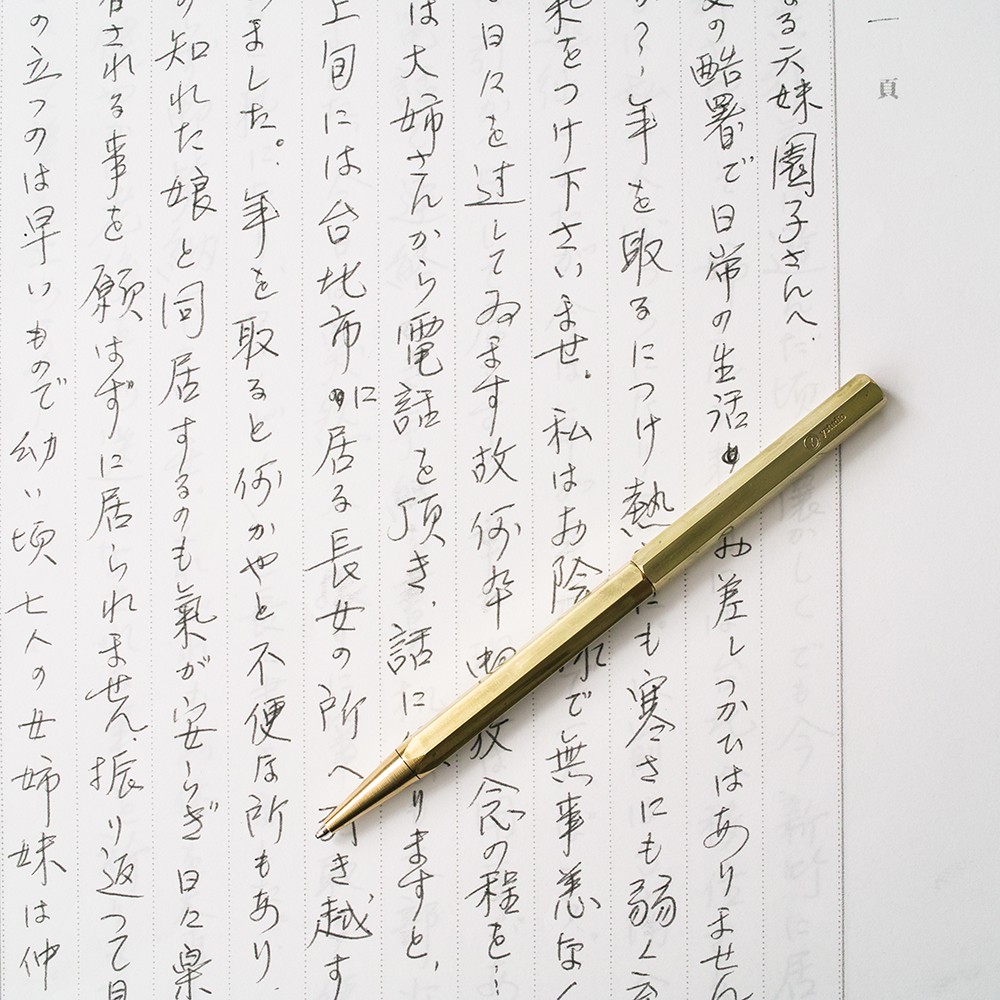 一
頁
る六妹園子さんへ.
の酷暑で日常の生活 差しつかひはありません
？，年を取るにつけ熱 にも寒さにも弱く
をつけ下さいませ。私はお陰 で無事恙なく
日々を过してゐます故何卒 放念の程を…
は大姉さんから電話を頂き、話に りますと，
上旬には台北市に居る長女の所へ き越す
ました。年を取ると何かやと不便な所もあり．
知れた娘と同居するのも氣が安らぎ日々
される事を願はずに居られません、振り返って
の立つのは早いもので幼い頃七人の女姉妹は仲
ystudio